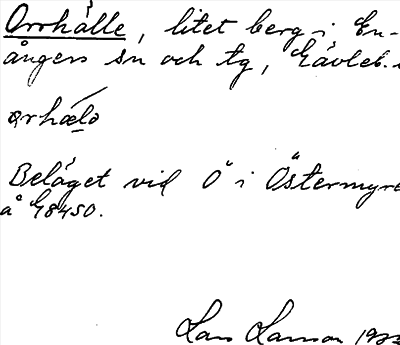 Orrhälle, litet berg i En-
ångers sn och tg, Gävleb.
orhælə
Beläget vid Ö i Östermyre
å G8450.
Lars Larson 19